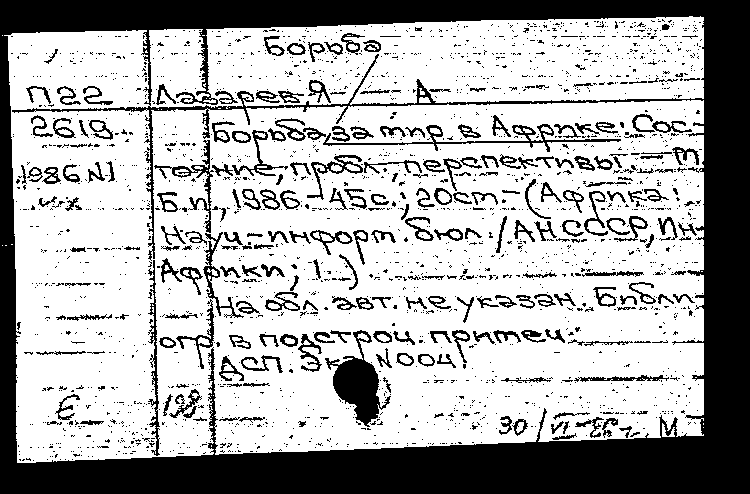 Борьба
П22 Лазарев, Я А
2619 Борьба за мир в Африке: Сос-
1986 N1 тояние, пробл., перспективы. - М.
Б.и., 1986. - 45с.; 20см. - (Африка:
Науч.-информ. бюл. / АН СССР, Ин-
Африки; 1.)
На обл. авт. не указан. Библи-
огр. в подстроч. примеч.
ДСП. Экз. N004.
Є 198
30/VI-86г. М